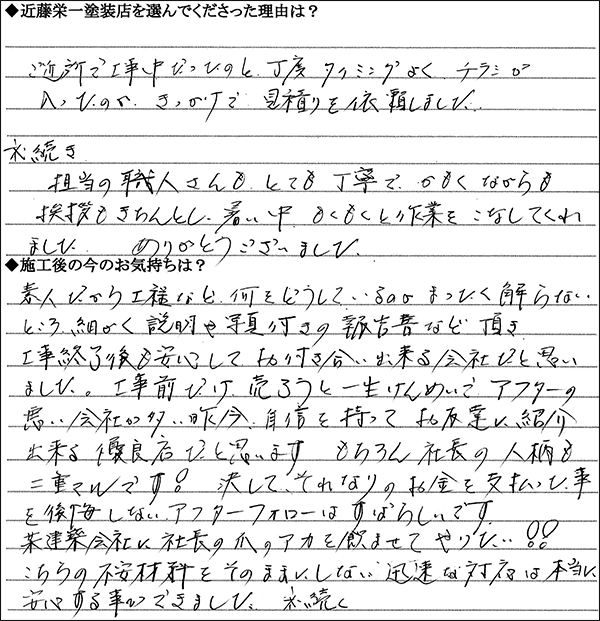 ◆近藤栄一塗装店を選んでくださった理由は？
ご近所で工事中だったのと、丁度タイミングよく チラシが
入ったのが、きっかけで 見積りを依頼しました。
お続き
担当の職人さんも、とても 丁寧で、 ながらも
挨拶もきちんとし、暑い中、もくもくと作業をこなしてくれ
ました。 ありがとうございました。
◆施工後の今のお気持ちは？
素人だから工程など、何をどうしているのか まったく解らない
ところ、細かく説明や写真付きの報告書など 頂き
工事終了後も安心して お付き合い出来る会社だと思い
ました。工事前だけ、売ろうと一生けんめいで アフターの
悪い会社が多い昨今、自信を持って お友達に紹介
出来る優良店だと思います もちろん 社長の人柄も
二重マルです！ 決して、それなりのお金を支払った事
を後悔しない、アフターフォローは すばらしいです。
某建築会社に社長の爪のアカを飲ませて やりたい!!
こちらの不安材料をそのままにしない 迅速な対応は本当に
安心する事ができました。 お続く